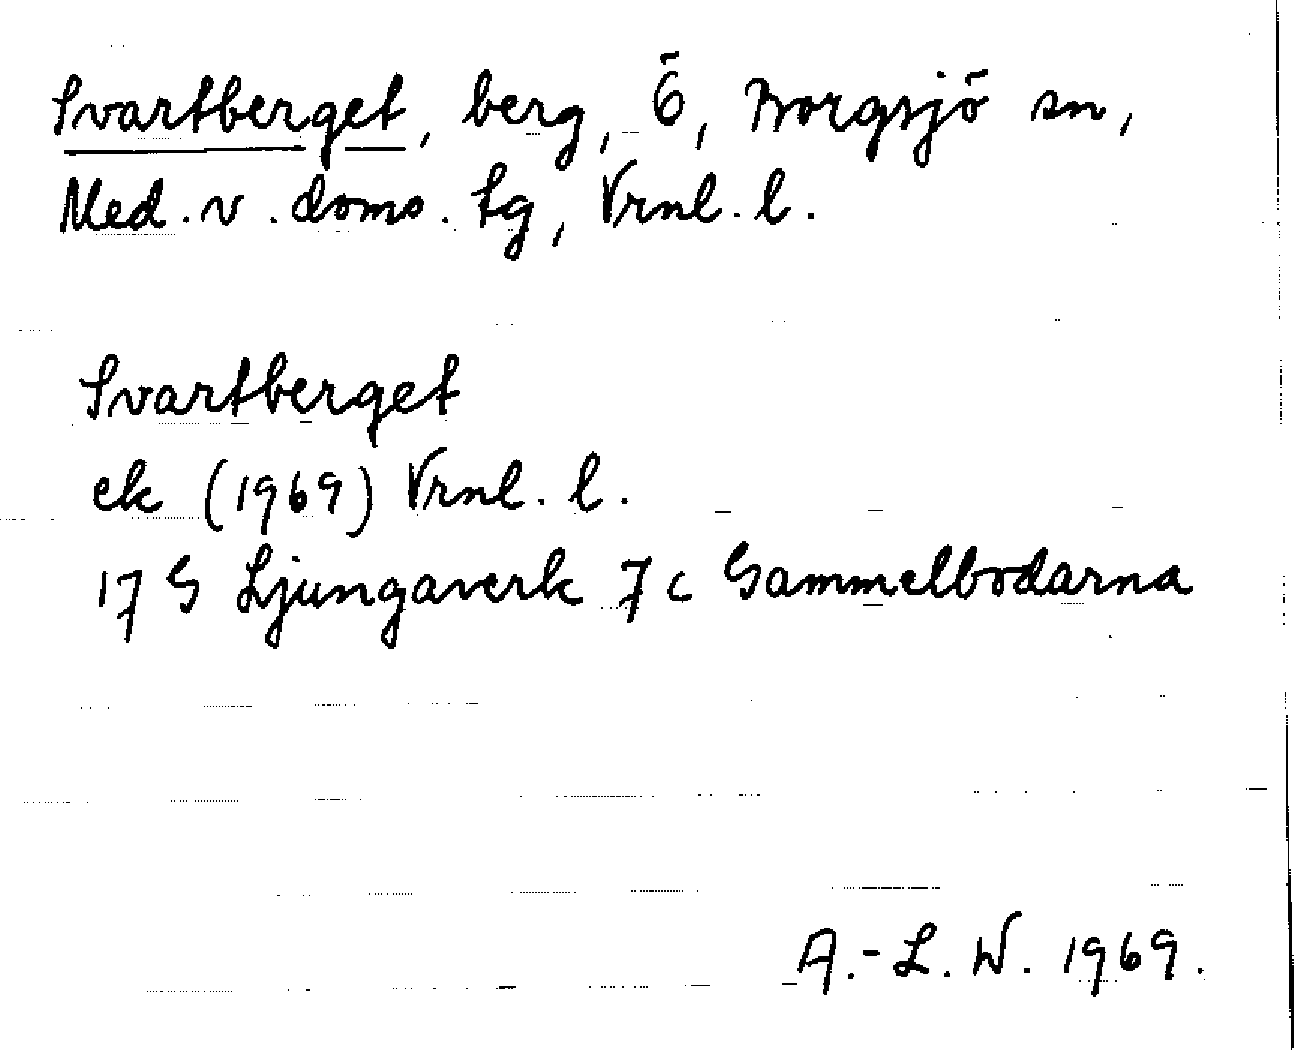 Svartberget, berg, Ö, Borgsjö sn,
Med. v. doms. tg, Vrnl. l.
Svartberget
ek (1969) Vrnl. l.
17 G Ljungaverk 7 c Gammelbodarna
A.-L. W. 1969.